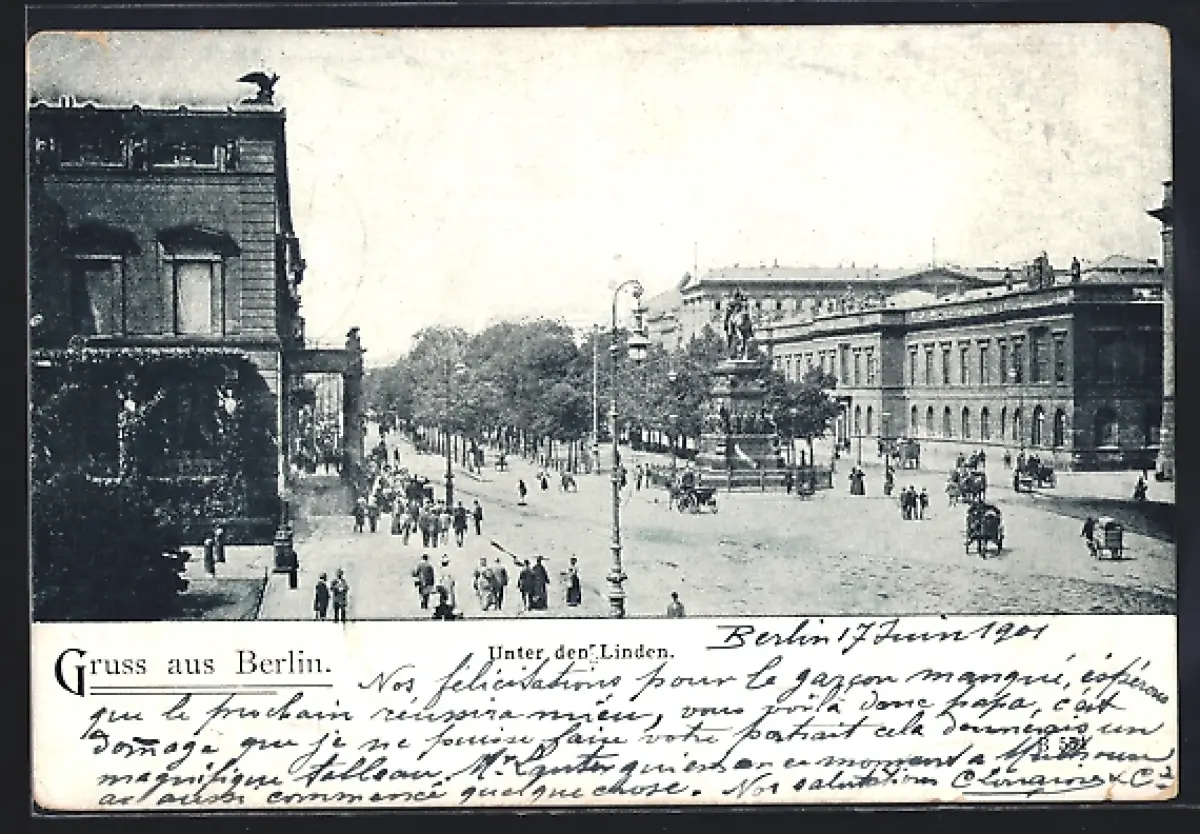 Gruss aus Berlin.
Unter den Linden.
Berlin 17 Juin 1901
Nos félicitations pour le garçon manqué, espérons
que le prochain réussira mieux, vous voilà donc papa, c'est
domage que je ne puisse faire votre portrait cela donnerais un
magnifique tableau. Mr qui est en ce moment a Mulhouse
a aussi commencé quelque chose. Nos salutations & Cie